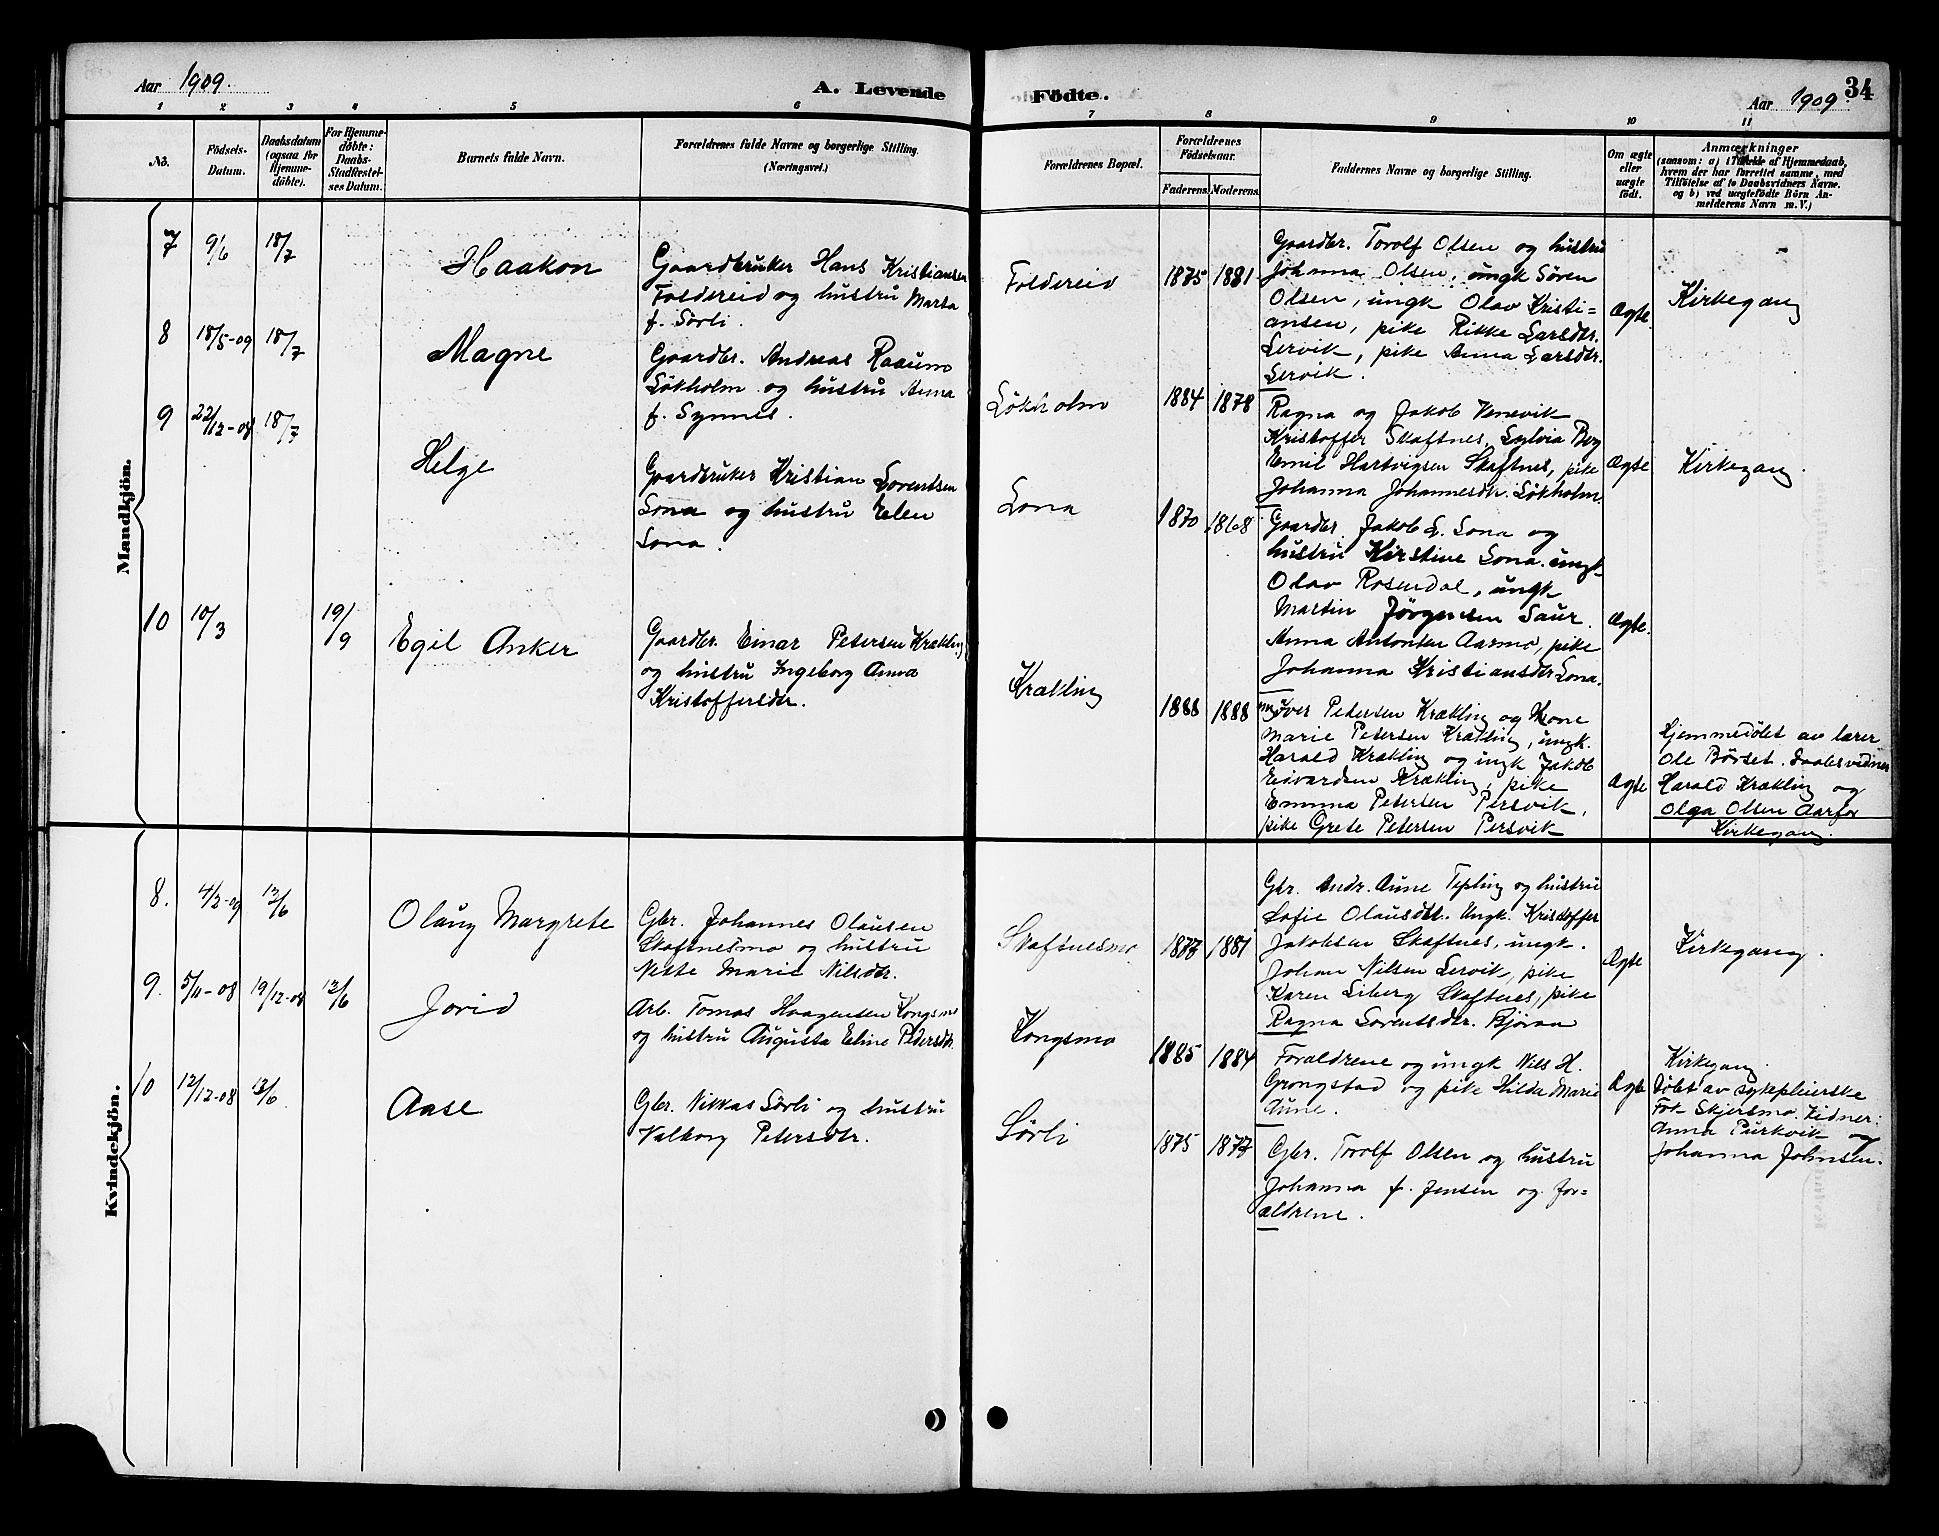 Aar 1909.
A. Levende
Födte.
34
Aar 1909.
1 2 3 4 5 6
7 8 9 10 11
No.
Födsels-
Datum.
Daabsdatum
(ogsaa for
Hjemme-
döbte).
For Hjemme-
döbte:
Daabs-
Stadfæstel-
ses Datum.
Barnets fulde Navn.
Forældrenes fulde Navne og borgerlige Stilling.
(Næringsvei.)
Forældrenes Bopæl.
Forældrenes
Födselsaar.
Faderens.
Moderens.
Faddernes Navne og borgerlige Stilling.
Om ægte
eller
uægte
födt.
Anmærkninger
(saasom: a) Tilfælde af Hjemmedaab,
hvem der har forrettet samme, med
Tilföielse af to Daabsvidners Navne.
og b) ved uægtefödte Börn An-
melderens Navn m. V.)
Mandkjön.
7
9/6
18/7
Haakon
Gaardbruker Hans Kristiansen
Foldereid og hustru Marta
f. Sörli.
Foldereid
1875
1881
Gaardbr. Torolf Olsen og hustru
Johanna Olsen, ungk Sören
Olsen, ungk Olav Kristi=
ansen, pike Rikke Larsdtr.
Lervik, pike Anna Larsdtr.
Lervik.
Ægte.
Kirkegang
8
18/5-09
18/7
Magne
Gaardbr. Andreas Raaum
Lökholm og hustru Anna
f. Synnes.
Lökholm
1884
1878
Ragna og Jakob Venevik
Kristoffer Skaftnes, Sylvia Berg
Emil Hartvigsen Skaftnes, pike
Johanna Johannesdtr. Lökholm.
Ægte
Kirkegang.
9
22/12-08
18/7
Helge
Gaardbruker Kristian Lorentsen
Lona og hustru Elen
Lona.
Lona
1870
1868
Gaardbr. Jakob L. Lona og
hustru Kirstine Lona. ungk
Olav Rosendal, ungk
Martin Jörgensen Saur.
Anna Antonsen Aarmo, pike
Johanna Kristiansdtr Lona.
Ægte.
10
10/3
19/9
Egil Anker
Gaardbr. Einar Petersen Krækling
og hustru Ingeborg Anna
Kristoffersdtr.
Krækling
1888
1888
Iver Petersen Krækling og Kone
Marie Petersen Krækling, ungk.
Harald Krækling og ungk Jakob
Eidvardsen Krækling, pike
Emma Petersen Persvik,
pike Grete Petersen Persvik
Ægte
Hjemmedöbt av lærer
Ole Börset. Daabsvidner
Harald Krækling og
Olga Olsen Aarfor
Kirkegang.
Kvindekjön.
8.
4/2-09
13/6
Olaug Margrete
Gbr. Johannes Olausen
Skaftnesmo og hustru
Nette Marie Nilsdtr.
Skaftnesmo
1877
1881
Gbr. Andr. Aune Tepling og hustru
Sofie Olausdtr. Ungk. Kristoffer
Jakobsen Skaftnes, ungk.
Johan Nilsen Lervik, pike
Karen Siberg Skaftnes, pike
Ragna Lorentsdtr. Björaa
Ægte
Kirkegang.
9.
5/11-08
19/12-08
13/6
Jorid
Arb. Tomas Haagensen Kongsmo
og hustru Augusta Eline Pedersdtr.
Kongsmo
1885
1884
Forældrene og ungk Nils H.
Grongstad og pike Hilda Marie
Aune.
Ægte
Kirkegang.
Döbt av sykepleierske
Frk Skjersmo. Vidner:
Anna Purkvik og
Johanna Johnsen.
10
12/12-08
13/6
Aase
Gbr. Niklas Sörli og hustru
Valborg Petersdtr.
Sörli
1875
1877
Gbr. Torolf Olsen og hustru
Johanna f. Jensen og for=
ældrene.